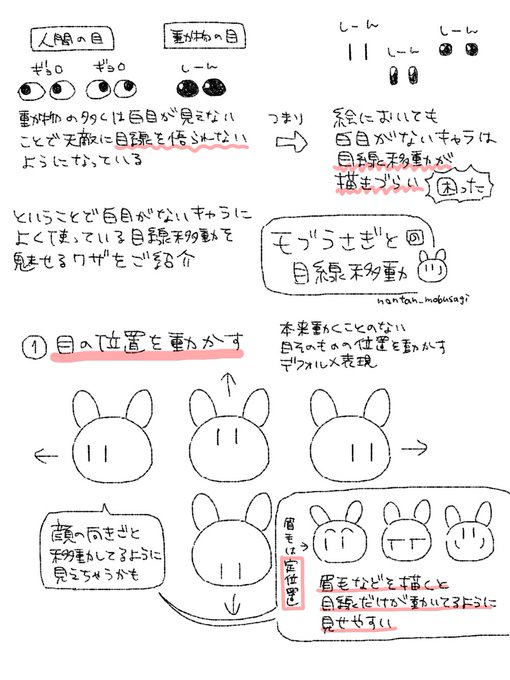 人間の目
動物の目
ギョロ ギョロ
しーん
しーん
しーん
しーん
動物の多くは白目が見えない
ことで天敵に目線を悟られない
ようになっている
つまり
絵においても
白目がないキャラは
目線移動が
描きづらい
困った
ということで白目がないキャラに
よく使っている目線移動を
魅せるワザをご紹介
モブうさぎと
目線移動
nontan_mobusagi
① 目の位置を動かす
本来動くことのない
目そのものの位置を動かす
デフォルメ表現
顔の向きごと
移動してるように
見えちゃうかも
眉毛は定位置
眉毛などを描くと
目線だけが動いてるように
見せやすい